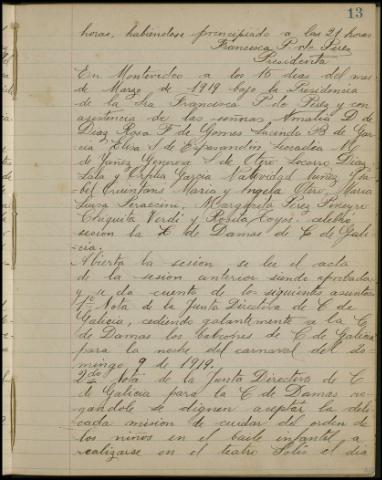 13
horas, habiendose principiado a las 21 horas
Francisca P. de Perez
Presidenta
En Montevideo a los 16 dias del mes
de Marzo de 1919 bajo la Presidencia
de la Sra Francisca P. de Perez y con
asistencia de las señoras Amalia D de
Diaz Rosa F. de Gomes Lucinda B de Gar
cia Elisa S de Esparandin Leocadia M
de Yañez Genoveva S de Otero Socorro Diaz
Lala y Orfilia Garcia Natividad Nuñez Ysa
bel Quintans Maria y Angela Otero, Maria
Luisa Peraccini, Margarita Perez Pineyro
Chiquita Verdi y Rosita Coyos. celebró
sesion la C de Damas de C de Gali-
cia.
Abierta la sesion se lee el acta
de la sesion anterior siendo aprobada
y se da cuenta de los siguientes asuntos
1º Nota de la Junta Directiva de C de
Galicia, cediendo galantemente a la C
de Damas los balcones de C de Galicia
para la noche del carnaval del do-
mingo 9 de 1919.
2do Nota de la Junta Directiva de C
de Galicia para la C de Damas ro-
gandole se dignen aceptar la deli
cada mision de cuidar del orden de
los niños en el baile infantil a
realizarse en el teatro Solis el dia